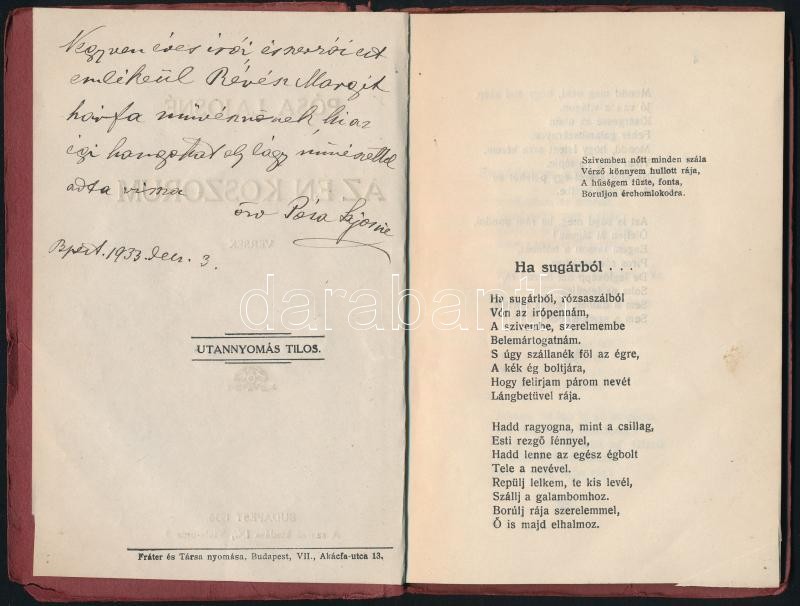 Negyven éves írói és szerzői est
emlékeül Révész Margit
hárfa művésznőnek ki az
égi hangokat oly lágy művészettel
adta vissza
özv Pósa Lajosné
Bpest. 1933. dec. 3.
UTANNYOMÁS TILOS.
Fráter és Társa nyomása, Budapest, VII., Akácfa-utca 13.
Szivemben nőtt minden szála
Vérző könnyem hullott rája,
A hűségem fűzte, fonta,
Boruljon érchomlokodra.
Ha sugárból . . .
Ha sugárból, rózsaszálból
Vón az irópennám,
A szivembe, szerelmembe
Belemártogatnám.
S úgy szállanék föl az égre,
A kék ég boltjára,
Hogy felirjam párom nevét
Lángbetüvel rája.
Hadd ragyogna, mint a csillag,
Esti rezgő fénnyel,
Hadd lenne az egész égbolt
Tele a nevével.
Repülj lelkem, te kis levél,
Szállj a galambomhoz.
Borúlj rája szerelemmel,
Ő is majd elhalmoz.
darabanth.com